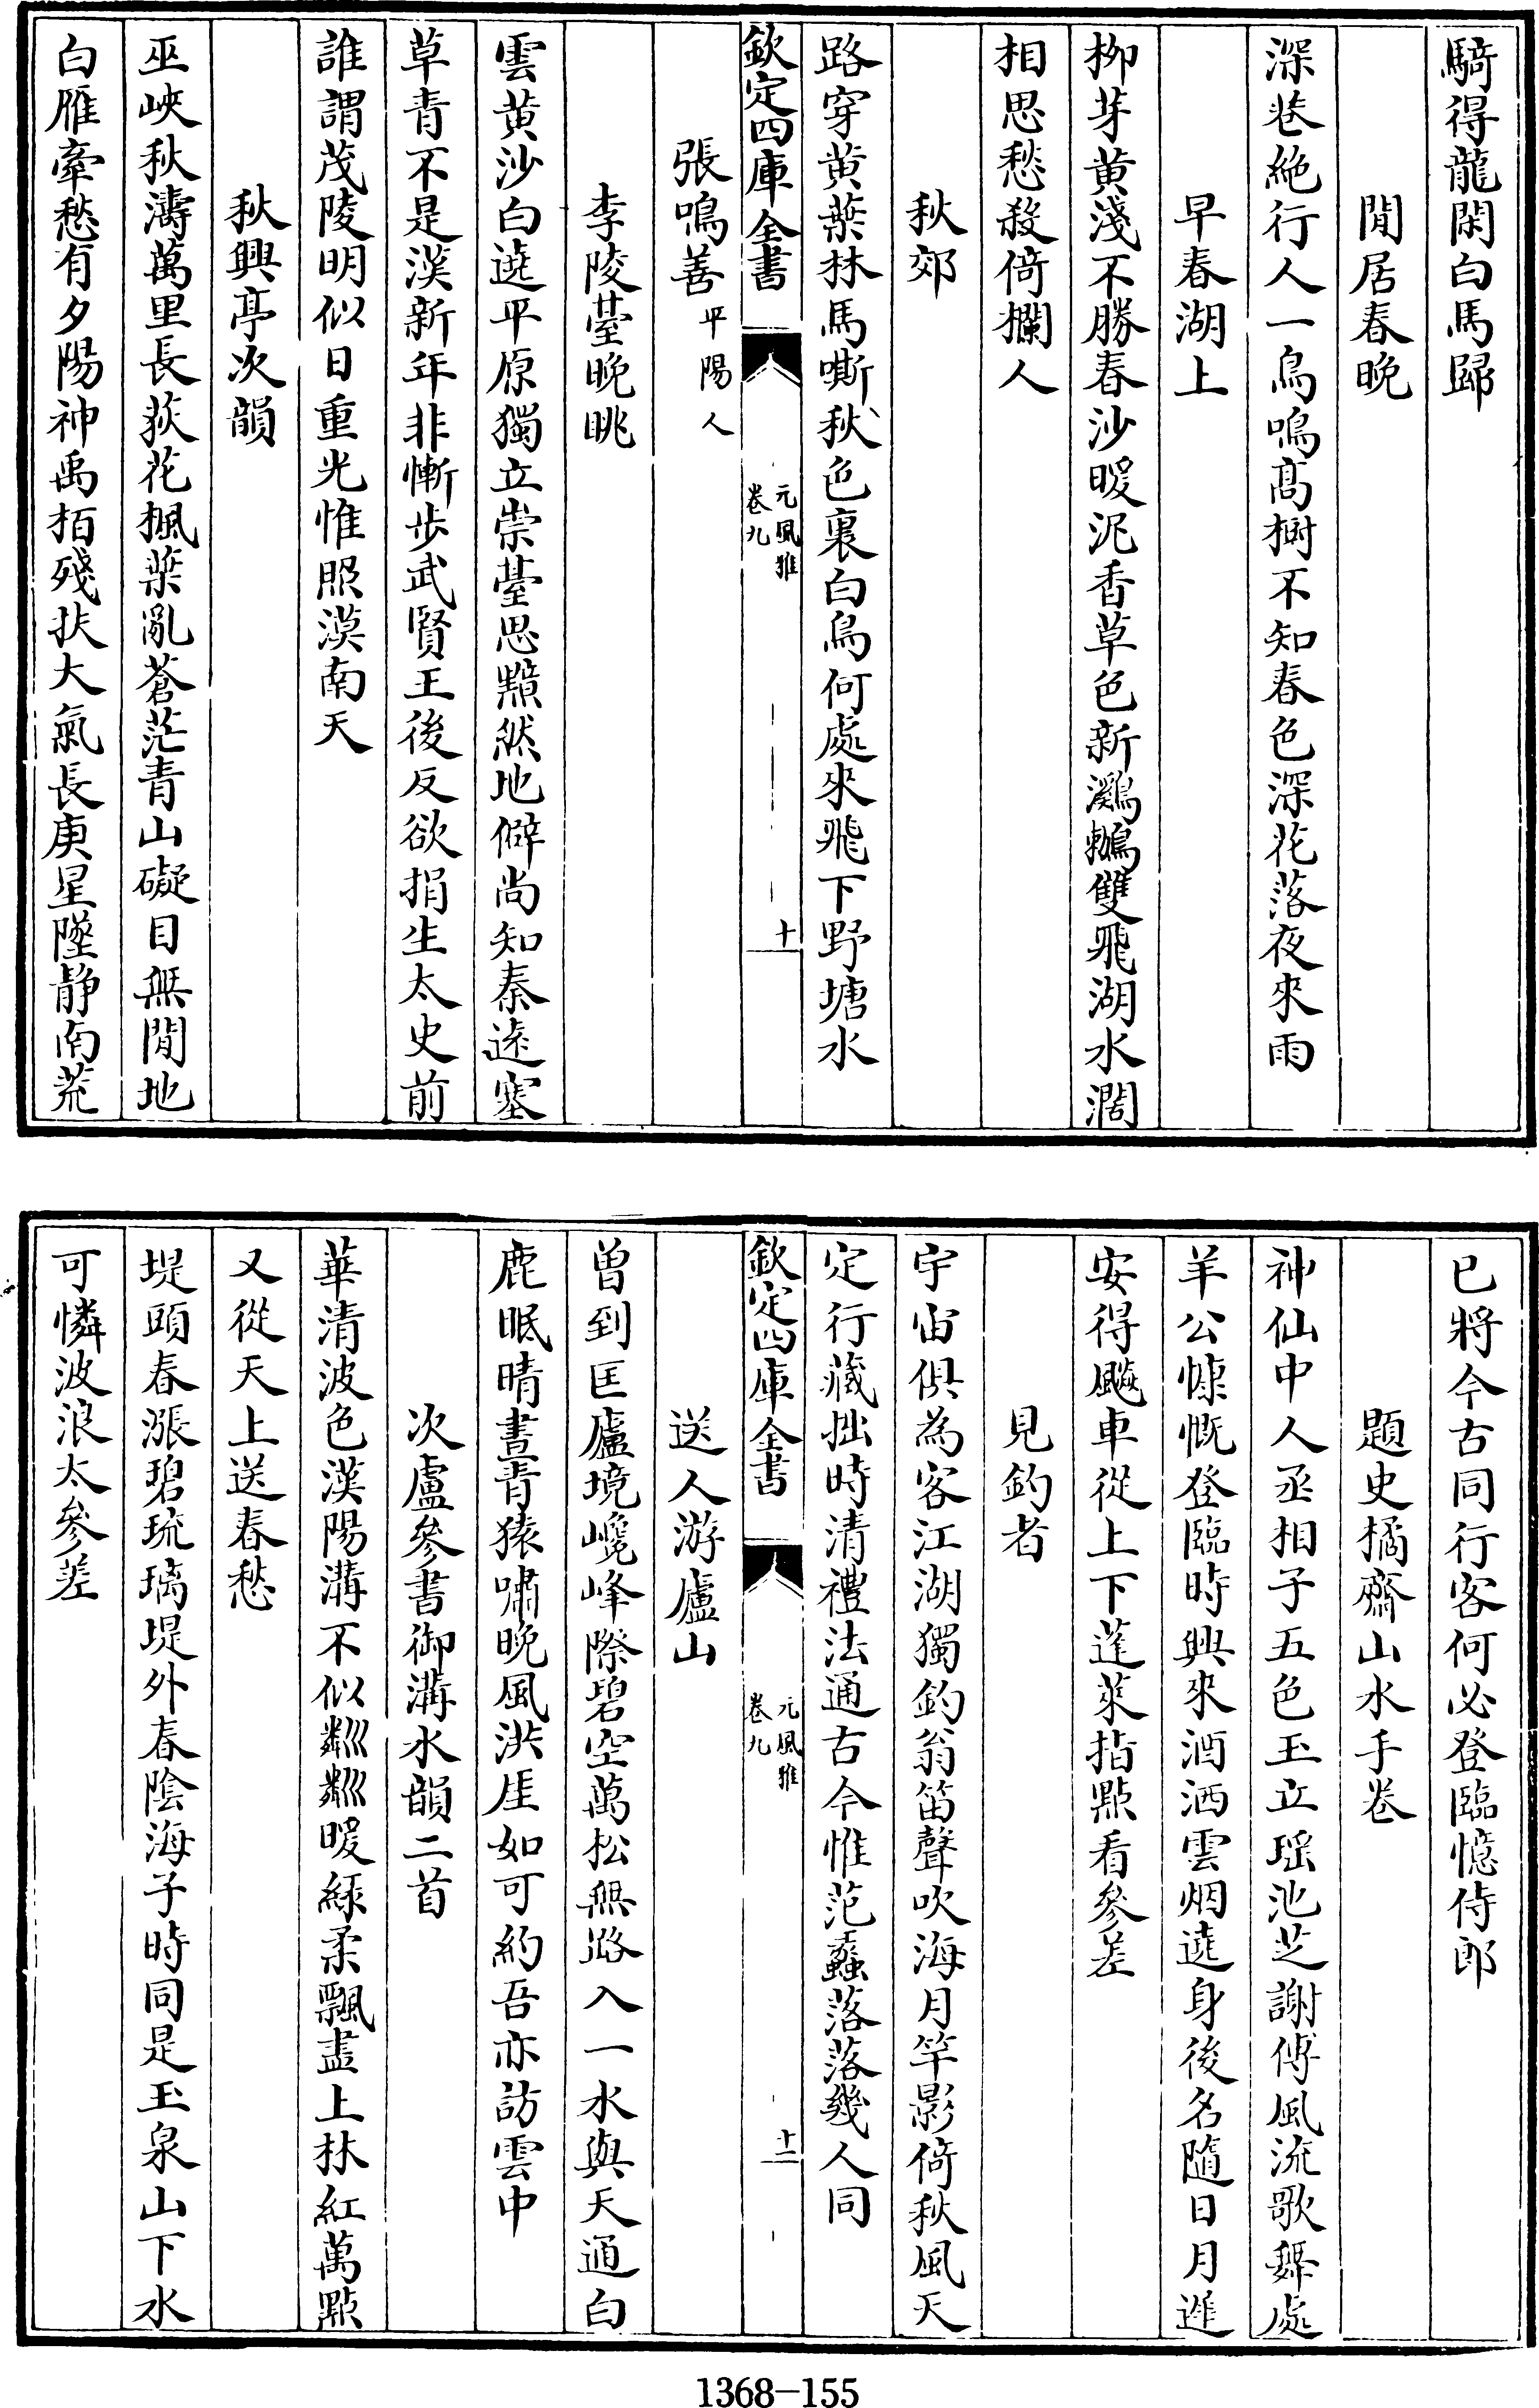 騎得龍閑白馬歸
閒居春晚
深巷絶行人一鳥鳴髙樹不知春色深花落夜來雨
早春湖上
栁芽黄淺不勝春沙暖泥香草色新鸂鶒雙飛湖水濶
相思愁殺倚欄人
秋郊
路穿黄葉林馬嘶秋色裏白鳥何處來飛下野塘水
欽定四庫全書
元風雅
卷九
十
張鳴善平陽人
李陵䑓晚眺
雲黄沙白遶平原獨立崇䑓思黯然地僻尚知秦逺塞
草青不是漢新年非慚步武賢王後反欲捐生太史前
誰謂茂陵明似日重光惟照漠南天
秋興亭次韻
巫峽秋濤萬里長荻花楓葉亂蒼茫青山礙目無閒地
白雁牽愁有夕陽神禹栢殘扶大氣長庚星墜静南荒
已將今古同行客何必登臨憶侍郎
題史橘齋山水手卷
神仙中人丞相子五色玉立瑶池芝謝傅風流歌舞處
羊公慷慨登臨時興來酒洒雲烟遶身後名隨日月遲
安得飈車從上下蓬萊指㸃看參差
見釣者
宇宙俱為客江湖獨釣翁笛聲吹海月竿影倚秋風天
定行藏拙時清禮法通古今惟范蠡落落幾人同
欽定四庫全書
元風雅
卷九
十一
送人游廬山
曽到匡廬境巉峰際碧空萬松無路入一水與天通白
鹿眠晴晝青猿嘯晚風洪崖如可約吾亦訪雲中
次盧參書御溝水韻二首
華清波色漢陽溝不似粼粼暖緑柔飄盡上林紅萬㸃
又從天上送春愁
堤頭春漲碧琉璃堤外春陰海子時同是玉泉山下水
可憐波浪太參差
1368-155